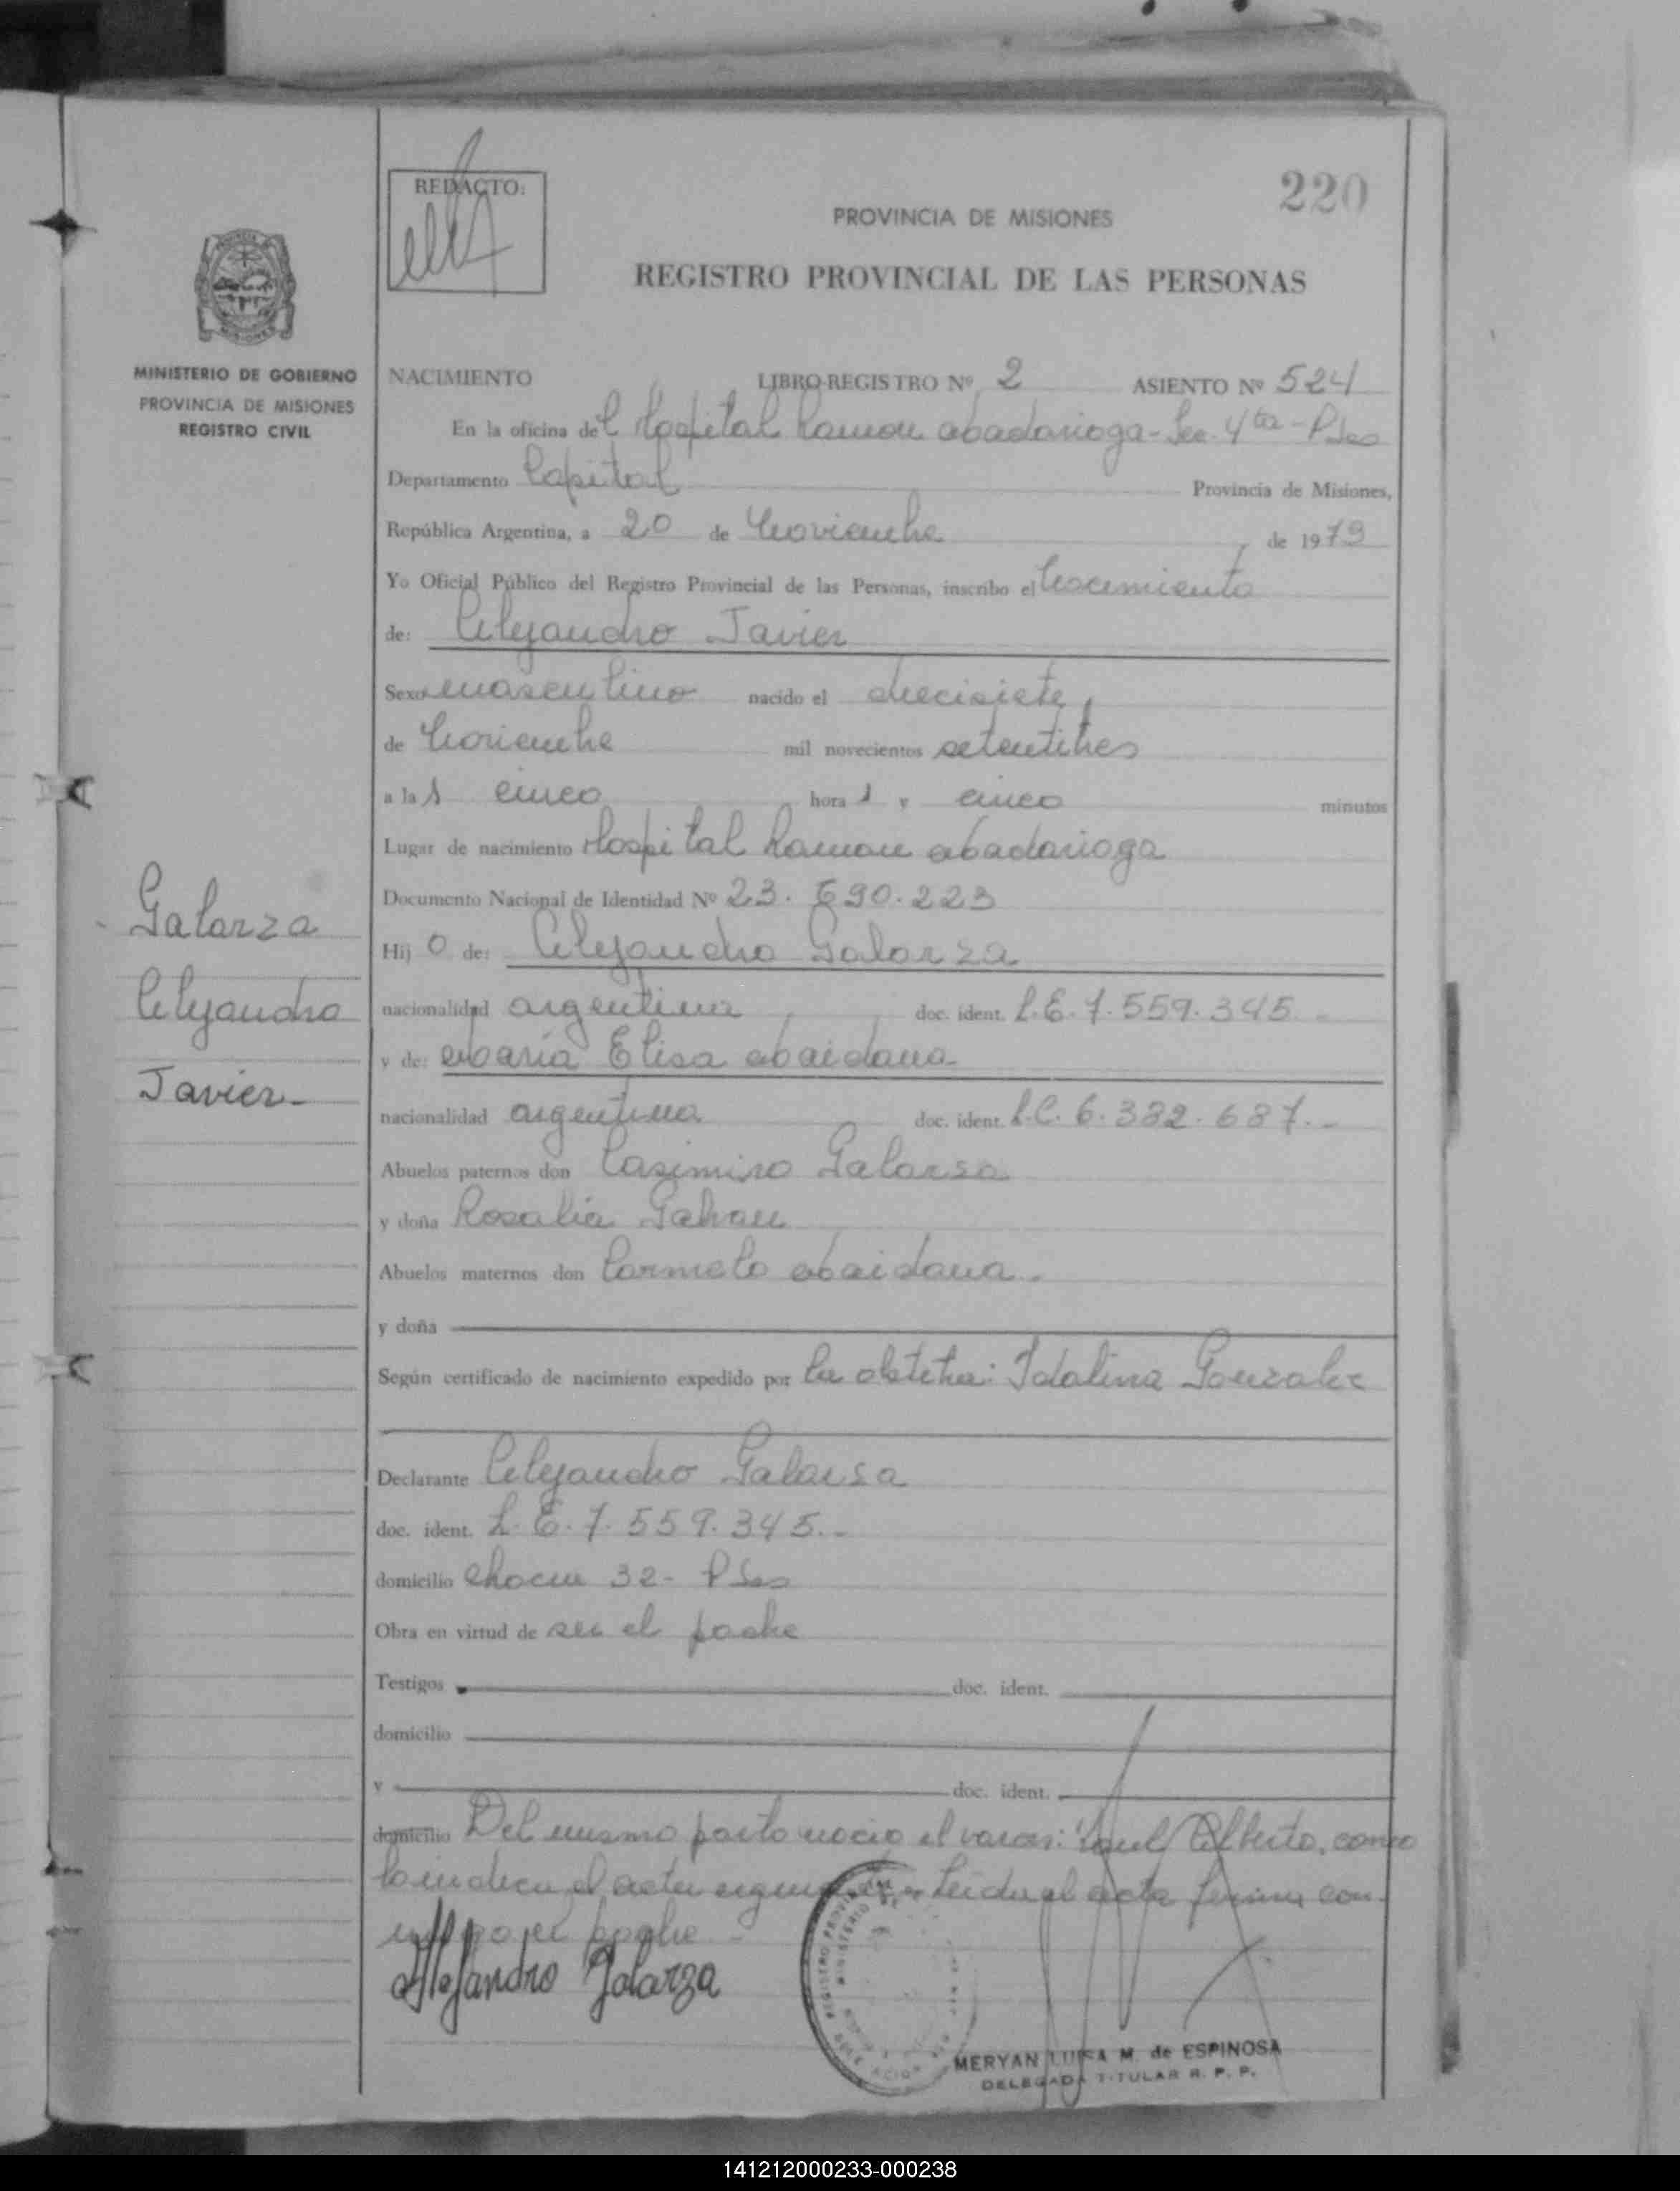 220
REDACTO:
PROVINCIA DE MISIONES
REGISTRO PROVINCIAL DE LAS PERSONAS
MINISTERIO DE GOBIERNO
PROVINCIA DE MISIONES
REGISTRO CIVIL
NACIMIENTO LIBRO-REGISTRO Nº 2 ASIENTO Nº 524
En la oficina del Hospital Ramon Madariaga - Sec. 4ta - Pdas
Departamento Capital Provincia de Misiones,
República Argentina, a 20 de Noviembre de 1973
Yo Oficial Público del Registro Provincial de las Personas, inscribo el Nacimiento
de: Alejandro Javier
Sexo masculino nacido el diecisiete
de Noviembre mil novecientos setentitres
a las cinco horas y cinco minutos
Lugar de nacimiento Hospital Ramon Madariaga
Documento Nacional de Identidad Nº 23.690.223
Galarza
Alejandro
Javier-
Hijo de: Alejandro Galarza
nacionalidad argentina doc. ident. L.E. 7.559.345-
y de: Maria Elisa Maidana-
nacionalidad argentina doc. ident. L.C. 6.382.687.-
Abuelos paternos don Casimiro Galarsa
y doña Rosalia Galvan
Abuelos maternos don Carmelo Maidana.-
y doña
Según certificado de nacimiento expedido por la obstetra: Idalina Gonzalez
Declarante Alejandro Galarsa
doc. ident. L.E. 7.559.345.-
domicilio Chacra 32- Pdas
Obra en virtud de ser el padre
Testigos doc. ident.
domicilio
y doc. ident.
domicilio Del mismo parto nacio el varon: Raul Alberto, como
lo indica el acta siguiente.- Leida el acta firma con-
migo el padre-
Alejandro Galarza
MERYAN LUISA M. de ESPINOSA
DELEGADA TITULAR R. P. P.
141212000233-000238